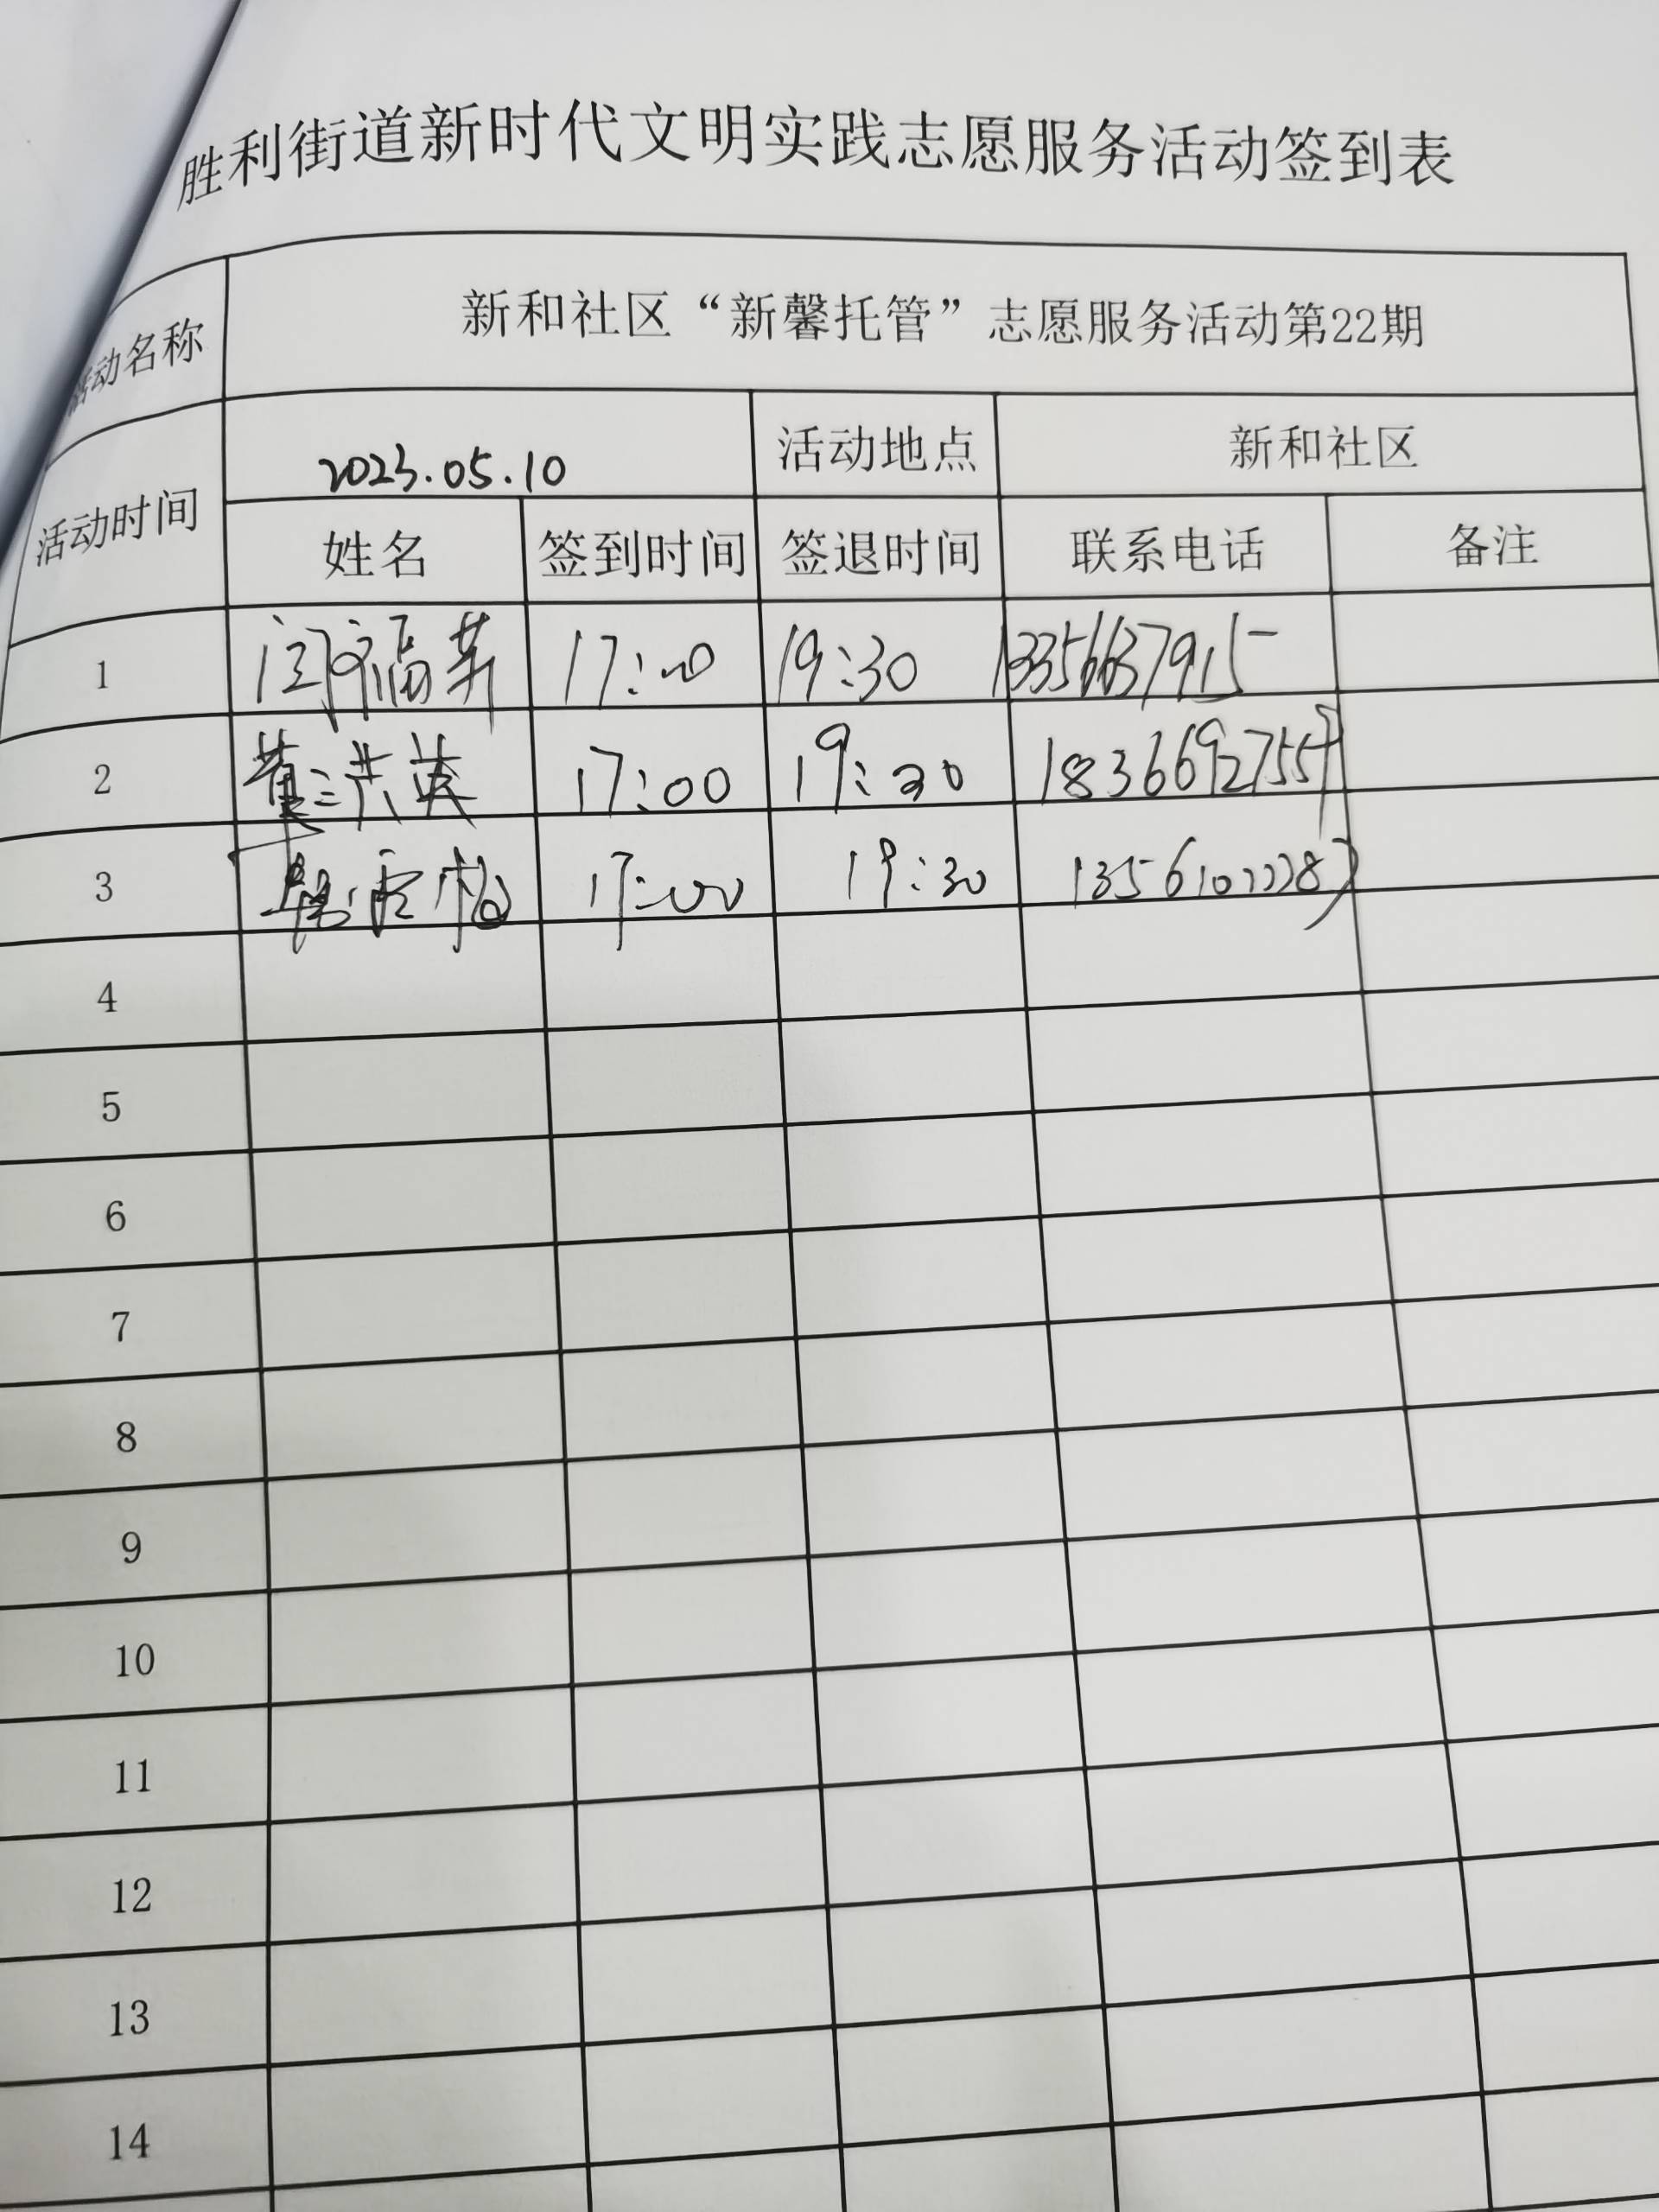 胜利街道新时代文明实践志愿服务活动签到表
活动名称 新和社区“新馨托管”志愿服务活动第22期
活动时间 2023.05.10 活动地点 新和社区
姓名 签到时间 签退时间 联系电话 备注
1 闫福英 17:00 19:30 13356637915
2 董洪英 17:00 19:30
3 17:00 19:30
4
5
6
7
8
9
10
11
12
13
14